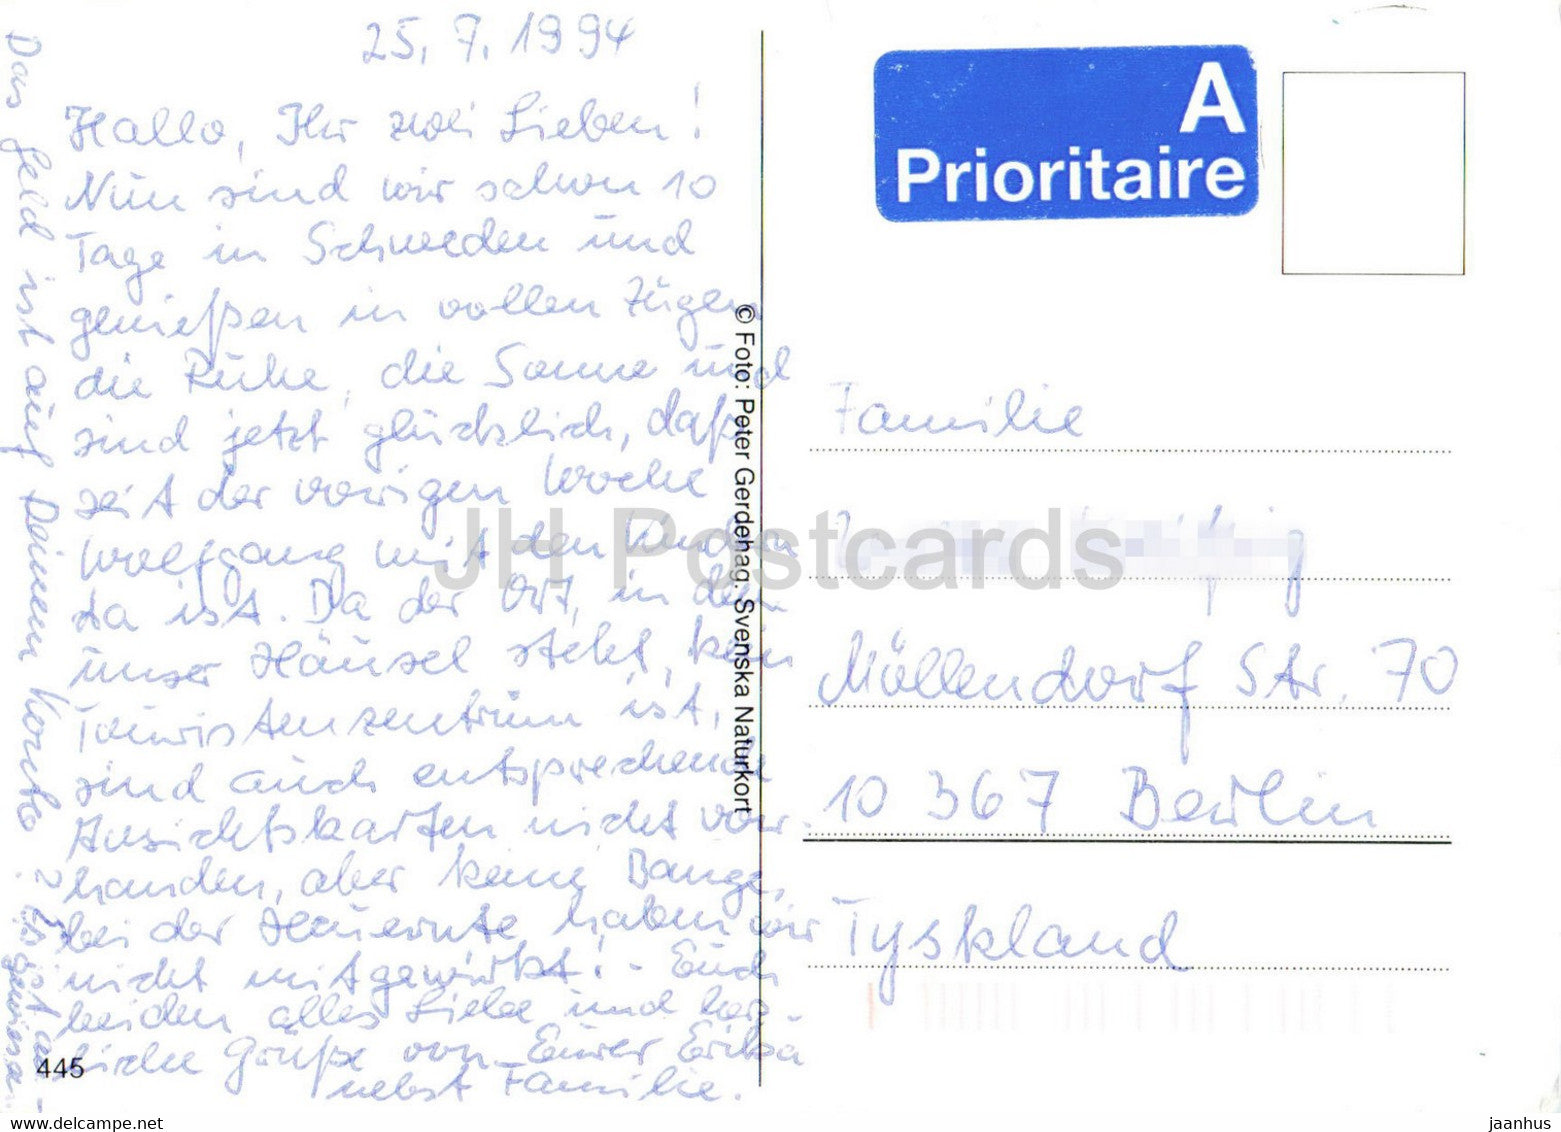 25. 7. 1994
Hallo, Ihr zwei Lieben!
Nun sind wir schon 10
Tage in Schweden und
genießen in vollen Zügen
die Ruhe, die Sonne und
sind jetzt glücklich, daß
seit der vorigen Woche
Wolfgang mit den Kindern
da ist. Da der Ort, in dem
unser Häusel steht, kein
Touristenzentrum ist,
sind auch entsprechende
Ansichtskarten nicht vor-
handen, aber keine Bange,
bei der Heuernte haben wir
nicht mitgewirkt! - Euch
beiden alles Liebe und herz-
liche Grüße von Eurer Erika
nebst Familie.
Das Geld ist auf Deinem Konto
445
© Foto: Peter Gerdehag. Svenska Naturkort
A
Prioritaire
Familie
Möllendorf Str. 70
10 367 Berlin
Tyskland
JH Postcards
www.delcampe.net
jaanhus